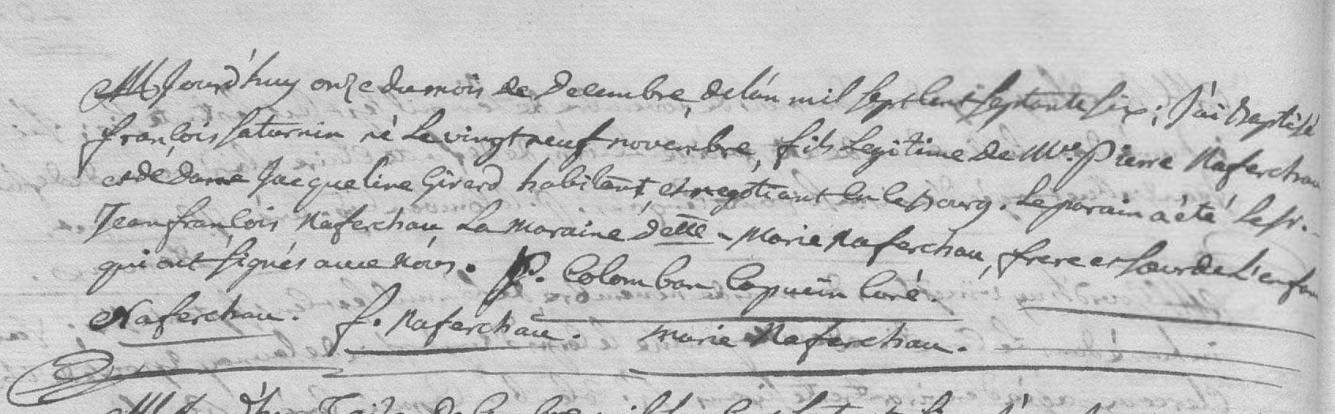 Aujourd'huy onze du mois de Decembre de l'an mil sept cent septante six; J'ai Baptisé
françois saturnin né le vingt neuf novembre, fils Legitime de Mr. Pierre Naferchau
et de Dame Jacqueline Girard habitant et negotiant en ce Bourg. Le parain a été Le sr.
Jean françois Naferchau La Maraine Dette Marie Naferchau, frere et soeur de L'enfan
qui ont signés avec nous. P. Colomban Capucin Curé.
Naferchau. f. Naferchau. marie Naferchau.